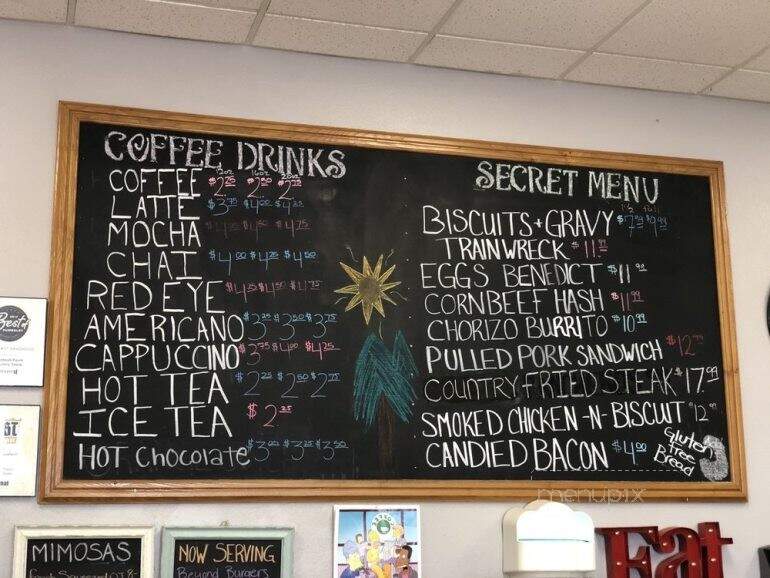 COFFEE DRINKS
12oz 16oz 20oz
COFFEE $2.25 $2.50 $2.75
LATTE $3.75 $4.00 $4.25
MOCHA $4.50 $4.75
CHAI $4.00 $4.25 $4.50
RED EYE $4.25 $4.50 $4.75
AMERICANO $3.25 $3.50 $3.75
CAPPUCCINO $3.75 $4.00 $4.25
HOT TEA $2.25 $2.50 $2.75
ICE TEA $2.25
HOT Chocolate $3.00 $3.25 $3.50
SECRET MENU
1/2 Full
BISCUITS + GRAVY $7.99 $9.99
TRAINWRECK $11.99
EGGS BENEDICT $11.99
CORNBEEF HASH $11.99
CHORIZO BURRITO $10.99
PULLED PORK SANDWICH $12.99
COUNTRY FRIED STEAK $17.99
SMOKED CHICKEN -N- BISCUIT $12.99
CANDIED BACON $4.00
Gluten
Free
Bread
menupix
Best of
MIMOSAS
NOW SERVING
Beyond Burgers
Eat